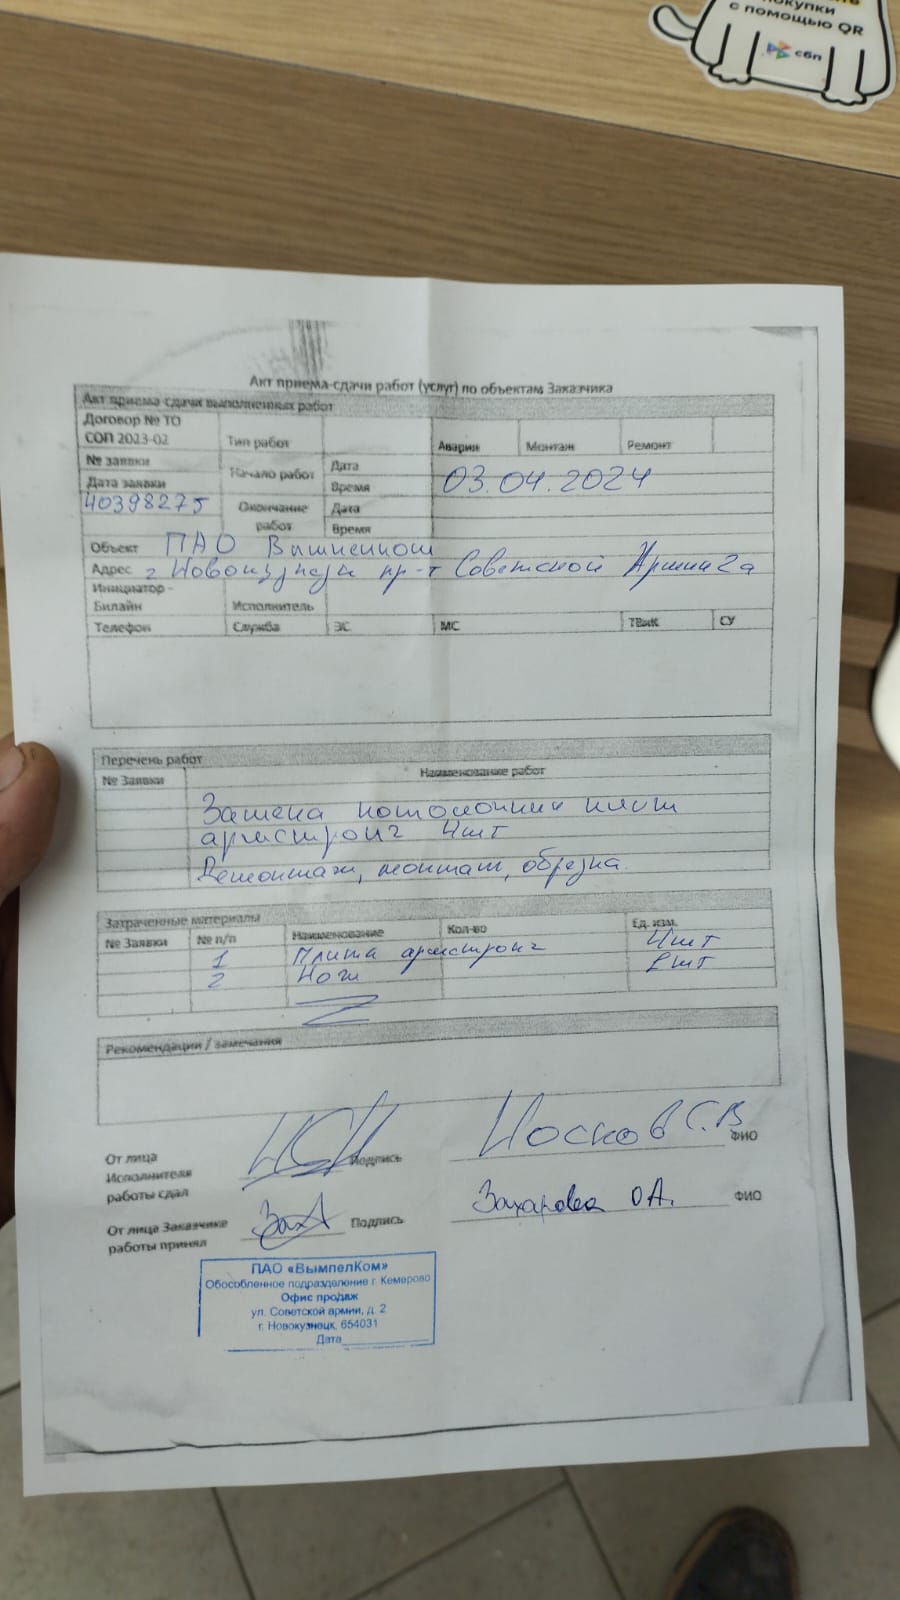 покупки
с помощью QR
сбп
Акт приема-сдачи работ (услуг) по объектам Заказчика
Акт приема-сдачи выполненных работ
Договор № ТО
СОП 2023-02
Тип работ
Авария
Монтаж
Ремонт
№ заявки
Начало работ
Дата
03.04.2024
Дата заявки
Время
40398275
Окончание
работ
Дата
Время
Объект ПАО Вымпелком
Адрес г Новокузнецк пр-т Советской Армии 2а
Инициатор -
Билайн
Исполнитель
Телефон
Служба
ЭС
МС
ТВиК
СУ
Перечень работ
№ Заявки
Наименование работ
Замена потолочних плит
армстронг 4шт
Демонтаж, монтаж, обрезка.
Затраченные материалы
№ Заявки
№ п/п
Наименование
Кол-во
Ед. изм.
1 Плита армстронг 4шт
2 Нож шт
Рекомендации / замечания
От лица
Исполнителя
работы сдал
Подпись
Носков С.В
ФИО
От лица Заказчике
работы принял
Подпись
Захарова О.А.
ФИО
ПАО «ВымпелКом»
Обособленное подразделение г. Кемерово
Офис продаж
ул. Советской армии, д. 2
г. Новокузнецк, 654031
Дата